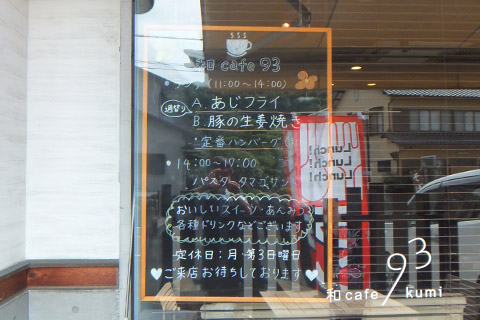 和 cafe 93
・ランチ(11:00〜14:00)
週替り
A. あじフライ
B. 豚の生姜焼き
・定番ハンバーグ
・14:00〜17:00
パスタ・タマゴサンド
おいしいスイーツ・あんみつ
各種ドリンクなどございます
定休日:月・第3日曜日
♥ご来店お待ちしております♥
Lunch!
Lunch!
Lunch!
和 cafe 93 kumi